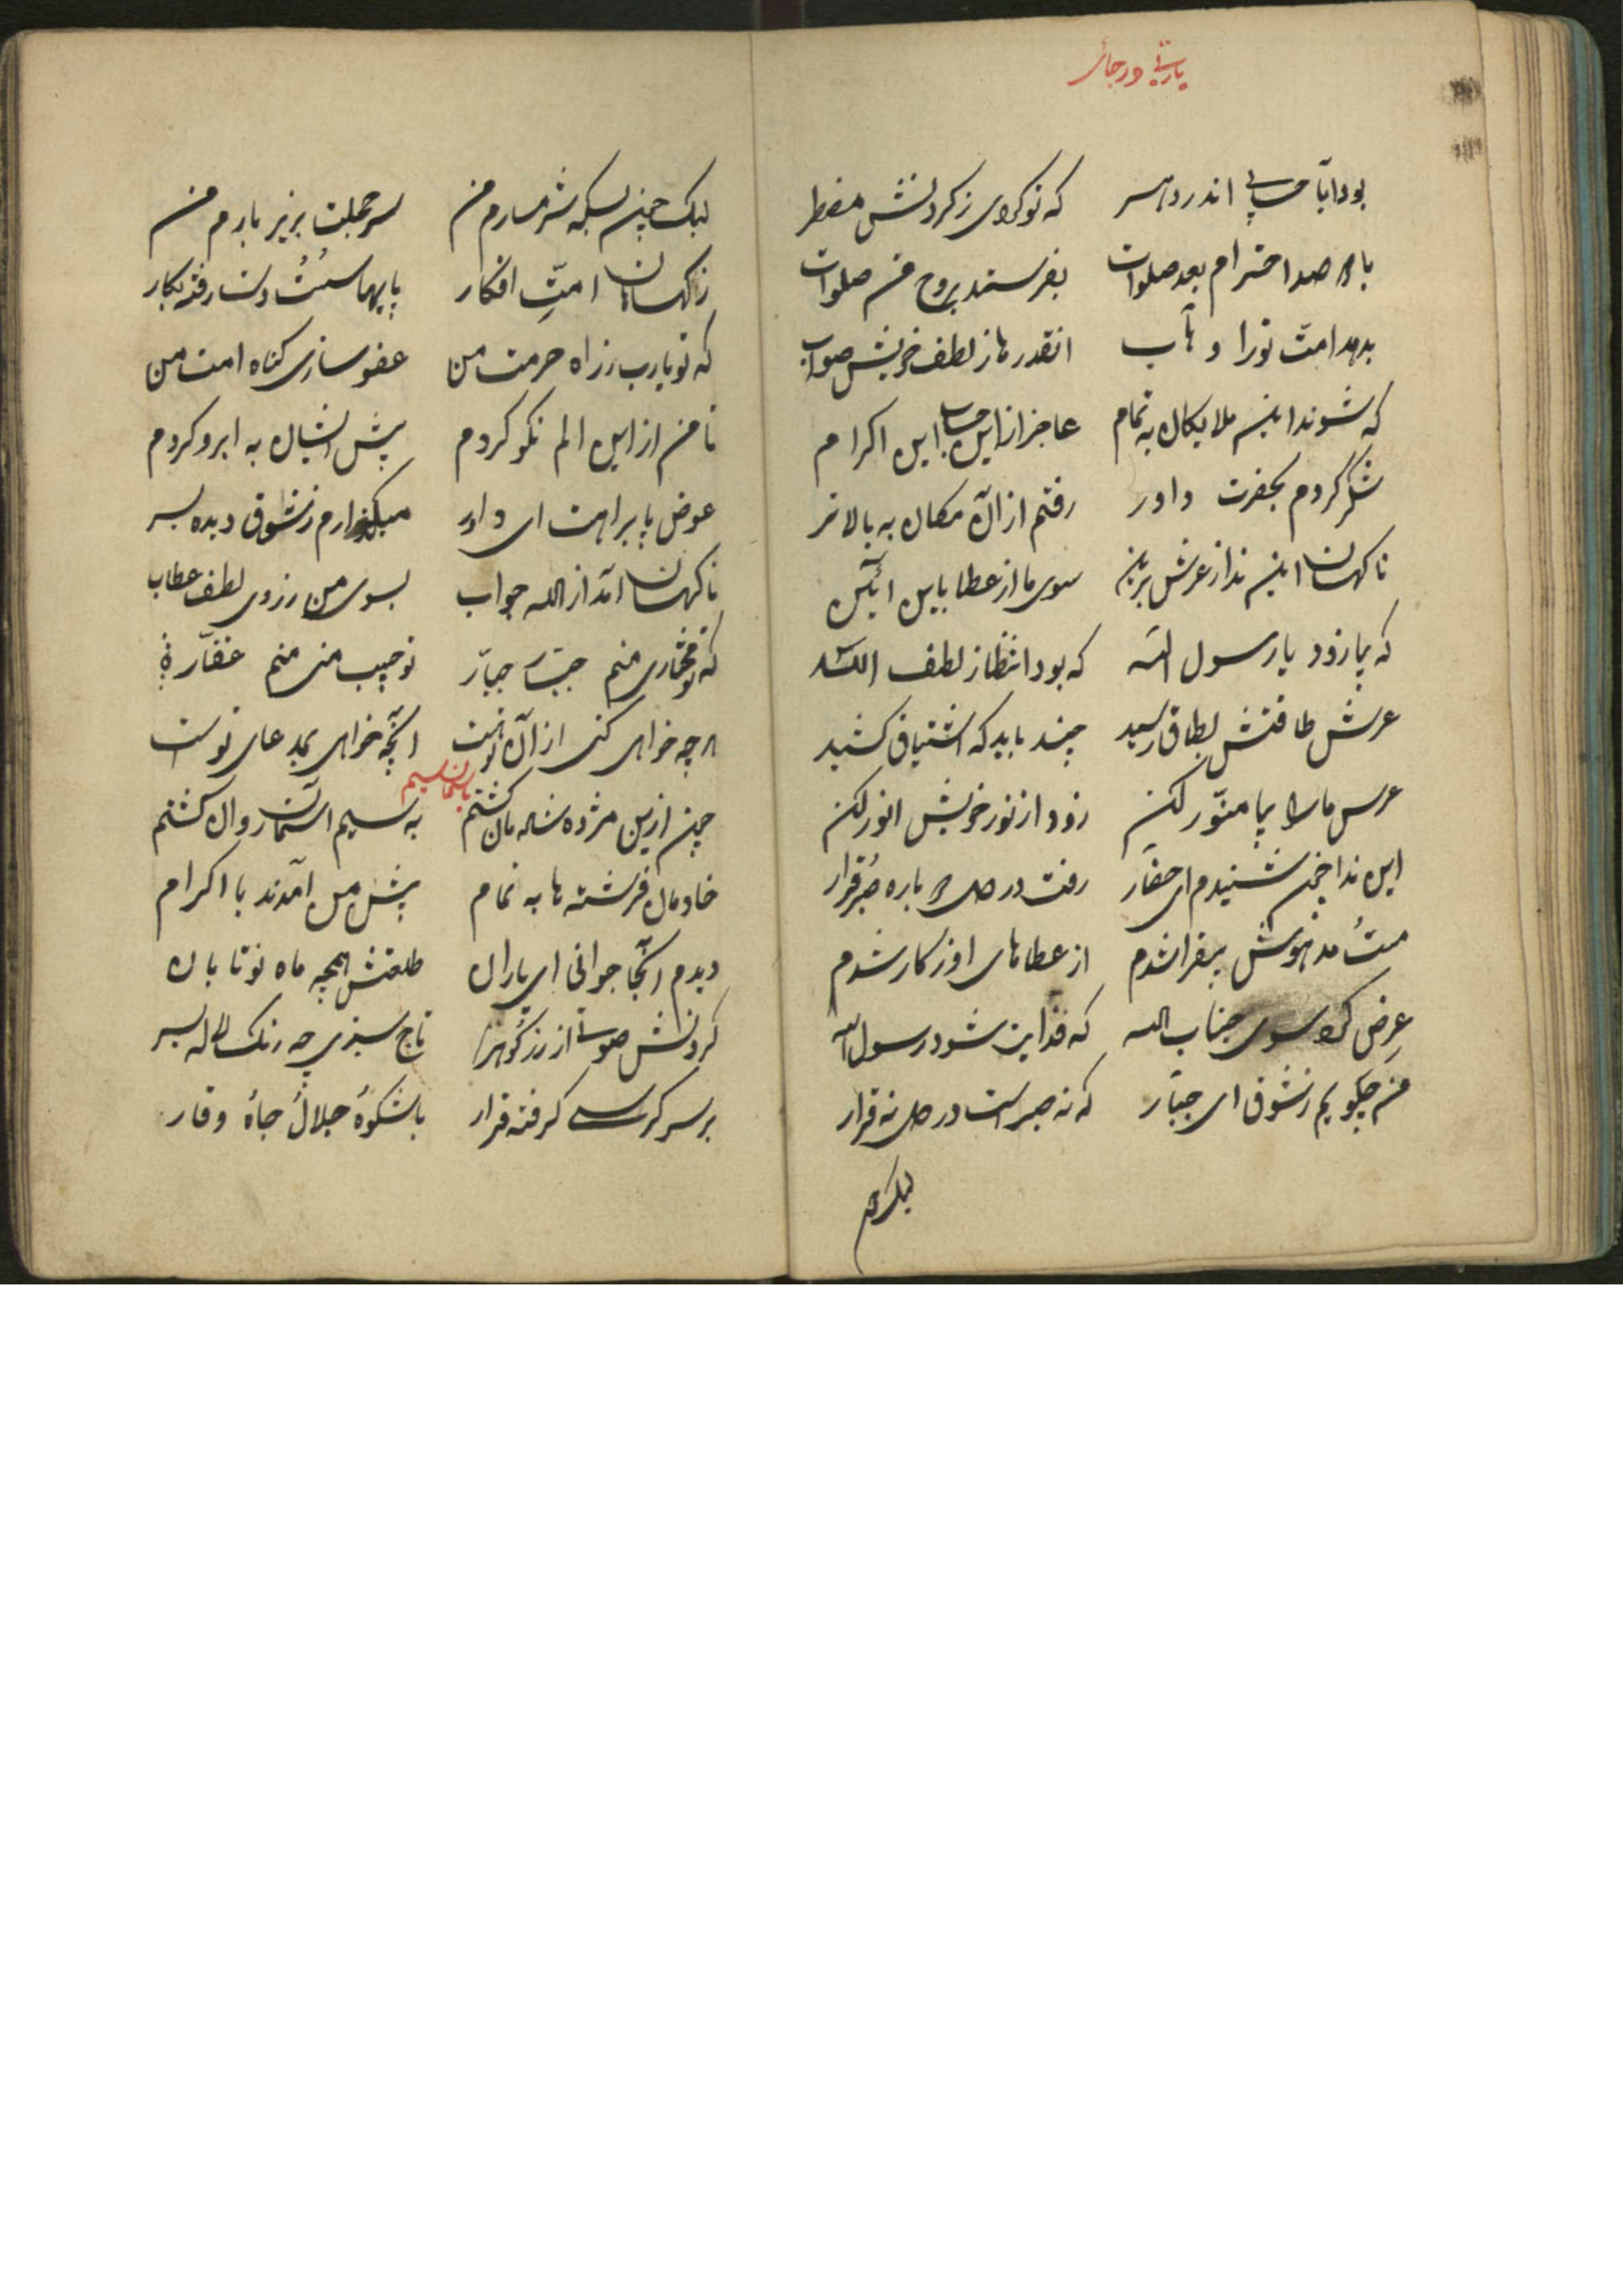 بود آیا حسابی اندر دهر که تو کردی ز کردنش مضطر
با صدا احترام بعد صلوات بفرستند بروح من صلوات
بدهد امت تو را وهاب انقدرها ز لطف خویش صواب
که شوند این ملایکان به تمام عاجز از این حساب این اکرام
شکر کردم بحضرت داور رفتم از آن مکان به بالاتر
ناکهان این ندا ز عرش برین سوی ما از عطا باین آئین
که بیا زود یا رسول الله که بود انتظار لطف الله
عرش طاقتش بطاق رسید چند باید که اشتیاق کشید
عرس ما را بیا منور کن زود از نور خویش انور کن
این ندا چون شنیدم ای حضار رفت در دل باره صبر قرار
مست مدهوش بیقرار شدم از عطاهای او ز کار شدم
عرض کردم سوی جناب اله که فدایت شود رسول الله
من چکویم ز شوق ای جبار که نه صبر است در دل نه قرار
لیک چون
لیک چون بسکه شرمسارم من سر خجلت بزیر بارم من
ز کناهان امت افکار پایها سست دست رفته بکار
که تو یارب ز راه حرمت من عفو سازی کناه امت من
تا من از این الم نکو کردم پیش ایشان به ابرو کردم
عوض پا براهت ای داور میکذارم ز شوق دیده بسر
ناکهان آمد از اله جواب بسوی من ز روی لطف عطاب
که تو مختاری منم جبار تو حبیب منی منم غفار
هر چه خواهی کنی از آن توست آنچه خواهی بمدعای توست
باسمان سیم
چون ازین مژده شادمان کشتم به سیم آسمان روان کشتم
خادمان فرشته ها به تمام پیش من آمدند با اکرام
دیدم آنجا جوانی ای یاران طلعتش همچه ماه نو تابان
کردنش از زر کوهر تاج سبزی چه رنک لاله بسر
بر سر کرسی کرفته قرار با شکوه جلال جاه وقار